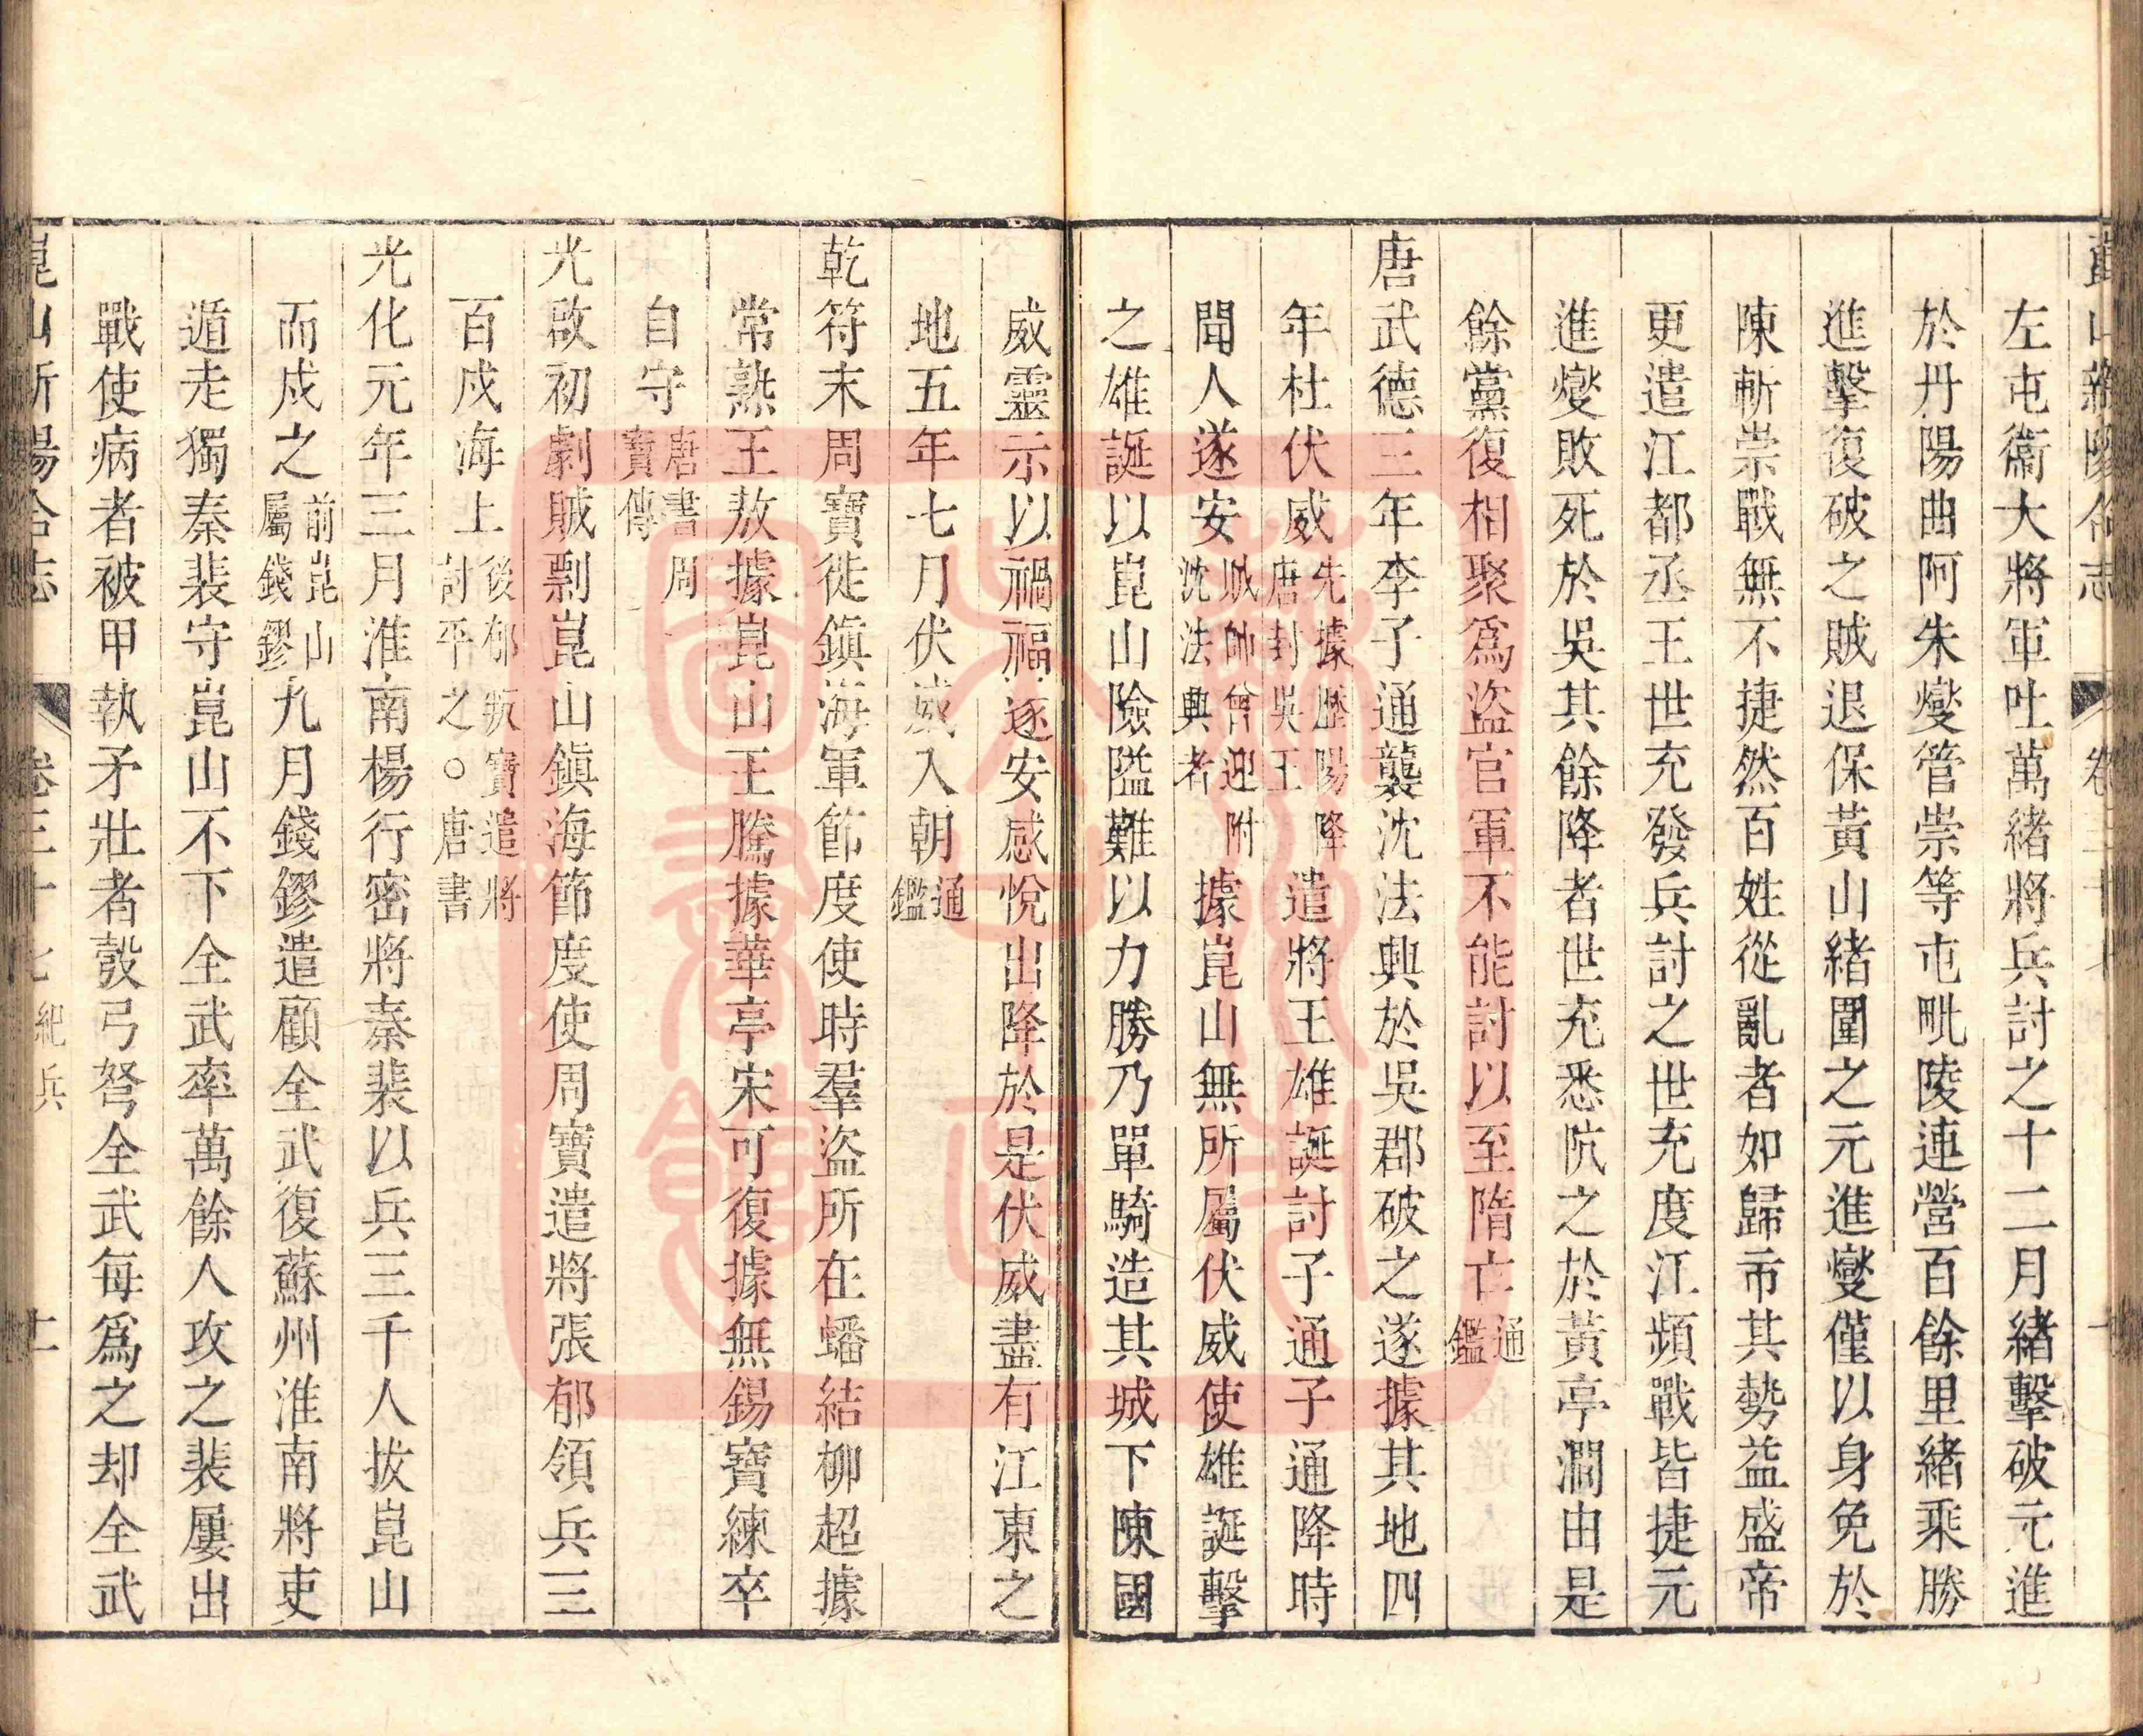 崑山新陽合志
卷三十七
十
左屯衞大將軍吐萬緒將兵討之十二月緒擊破元進
於丹陽曲阿朱燮管崇等屯毗陵連營百餘里緒乘勝
進擊復破之賊退保黃山緒圍之元進燮僅以身免於
陳斬崇戰無不捷然百姓從亂者如歸市其勢益盛帝
更遣江都丞王世充發兵討之世充度江頻戰皆捷元
進燮敗死於吳其餘降者世充悉阬之於黃亭澗由是
餘黨復相聚爲盜官軍不能討以至隋亡通鑑
唐武德三年李子通襲沈法興於吳郡破之遂據其地四
年杜伏威先據歷陽降唐封吳王遣將王雄誕討子通子通降時
聞人遂安賊帥曾迎附沈法興者據崑山無所屬伏威使雄誕擊
之雄誕以崑山險隘難以力勝乃單騎造其城下陳國
威靈示以禍福遂安感悅出降於是伏威盡有江東之
地五年七月伏威入朝通鑑
乾符末周寶徙鎭海軍節度使時羣盜所在蟠結柳超據
常熟王敖據崑山王騰據華亭宋可復據無錫寶練卒
自守唐書周寶傳
光啟初劇賊剽崑山鎭海節度使周寶遣將張郁領兵三
百戍海上後郁叛寶遣將討平之○唐書
光化元年三月淮南楊行密將秦裴以兵三千人拔崑山
而戍之前崑山屬錢鏐九月錢鏐遣顧全武復蘇州淮南將吏
遁走獨秦裴守崑山不下全武率萬餘人攻之裴屢出
戰使病者被甲執矛壯者彀弓弩全武每爲之却全武
崑山新陽合志
卷三十七
紀兵
十一